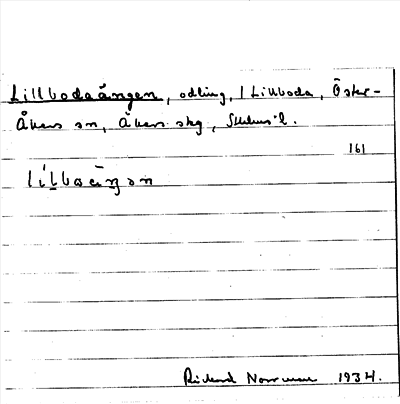 Lillbodaängen, odling, 1 Lillboda, Öster-
Åkers sn, Åkers skg, Sthms l.
161
Rickard Norrman 1934.